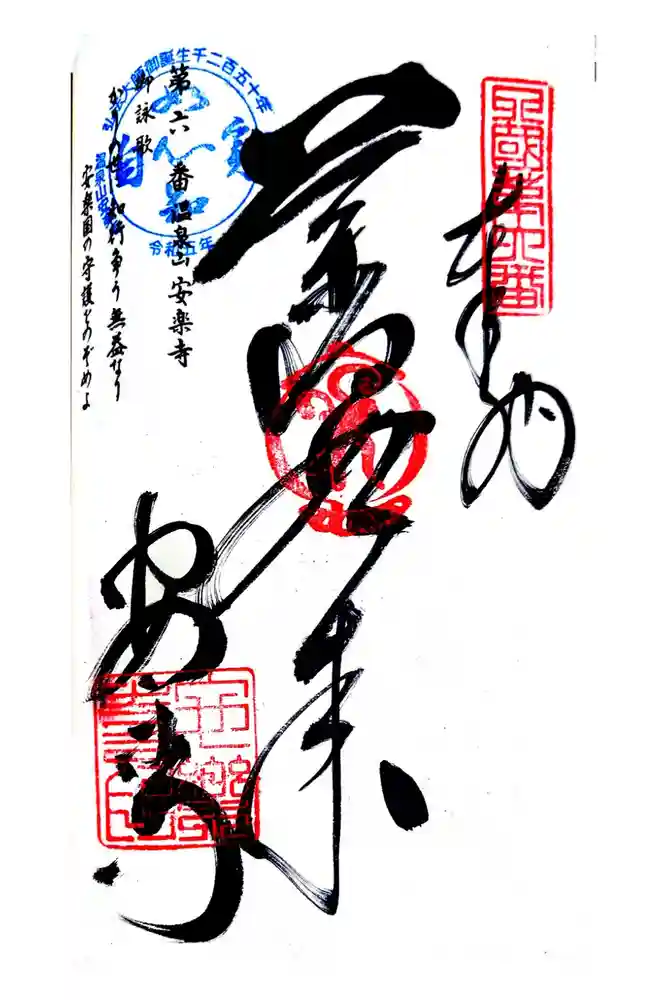 四國第六番
奉納
薬師如来
安楽寺
弘法大師御誕生千二百五十年
如実知自心
令和五年
第六番 温泉山 安楽寺
御詠歌
かりの世に 知行争う 無益なり
安楽国の守護をのぞめよ